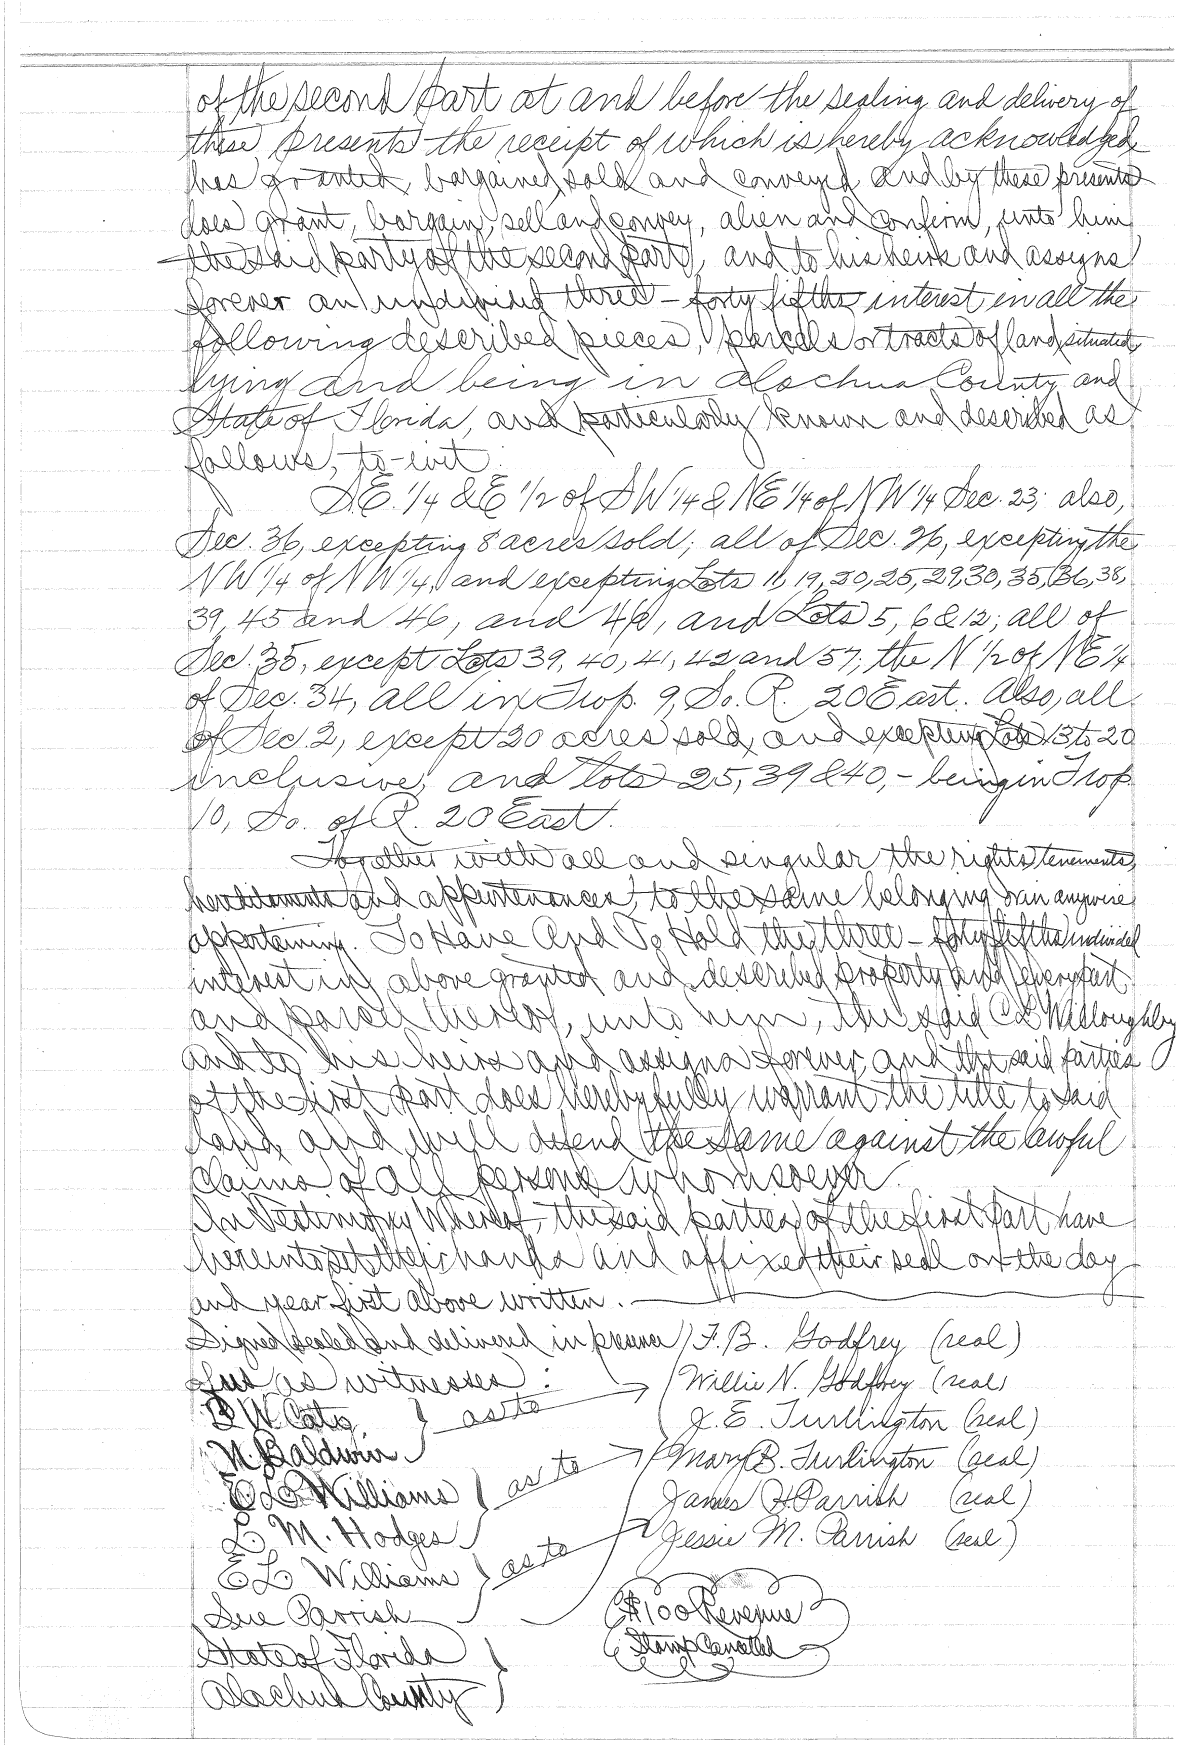 of the second part at and before the sealing and delivery of
these presents the receipt of which is hereby acknowledged,
has granted, bargained, sold and conveyed and by these presents
does grant, bargain, sell and convey, alien and confirm, unto him
the said party of the second part, and to his heirs and assigns
forever an undivided three - forty fifths interest in all the
following described pieces, parcels or tracts of land, situated
lying and being in Alachua County and
State of Florida, and particularly known and described as
follows, to-wit
S.E. 1/4 & E 1/2 of SW 1/4 & NE 1/4 of NW 1/4 Sec. 23; also,
Sec. 36, excepting 8 acres sold; all of Sec. 26, excepting the
NW 1/4 of NW 1/4, and excepting Lots 11, 19, 20, 25, 29, 30, 35, 36, 38,
39, 45 and 46, and and Lots 5, 6 & 12; all of
Sec. 35, except Lots 39, 40, 41, 42 and 57; the N 1/2 of NE 1/4
of Sec. 34, all in Twp. 9, So. R. 20 East. Also, all
of Sec. 2, except 20 acres sold, and excepting Lots 13 to 20
inclusive, and lots 25, 39 & 40, - being in Twp.
10, So. of R. 20 East.
Together with all and singular the rights, tenements,
hereditaments and appurtenances, to the same belonging or in anywise
appertaining. To Have And To Hold the three - forty fifths undivided
interest in above granted and described property and every part
and parcel thereof, unto him, the said C L Willoughby
and to his heirs and assigns forever, and the said parties
of the first part does hereby fully warrant the title to said
land, and will defend the same against the lawful
claims of all persons whomsoever.
In Testimony Whereof, the said parties of the first part have
hereunto set their hands and affixed their seal on the day
and year first above written.
Signed, sealed and delivered in presence F. B. Godfrey (seal)
of us as witnesses: Willie N. Godfrey (seal)
B W Cates } as to J. E. Turlington (seal)
N. Baldwin Mary B. Turlington (seal)
E L Williams } as to James H Parrish (seal)
L M. Hodges Jessie M. Parrish (seal)
E L Williams } as to
Sue Parrish $1.00 Revenue
State of Florida } Stamp Cancelled
Alachua County